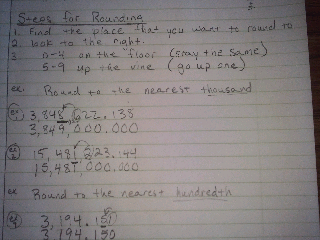 Steps for Rounding
1. Find the place that you want to round to
2. look to the right.
3 0-4 on the "floor" (stay the same)
5-9 up the vine (go up one)
ex. Round to the nearest thousand
ex 1 3,848,622.138
3,849,000.000
ex 2 15,481,223.144
15,481,000.000
ex Round to the nearest hundredth
3,194.151
3,194.150